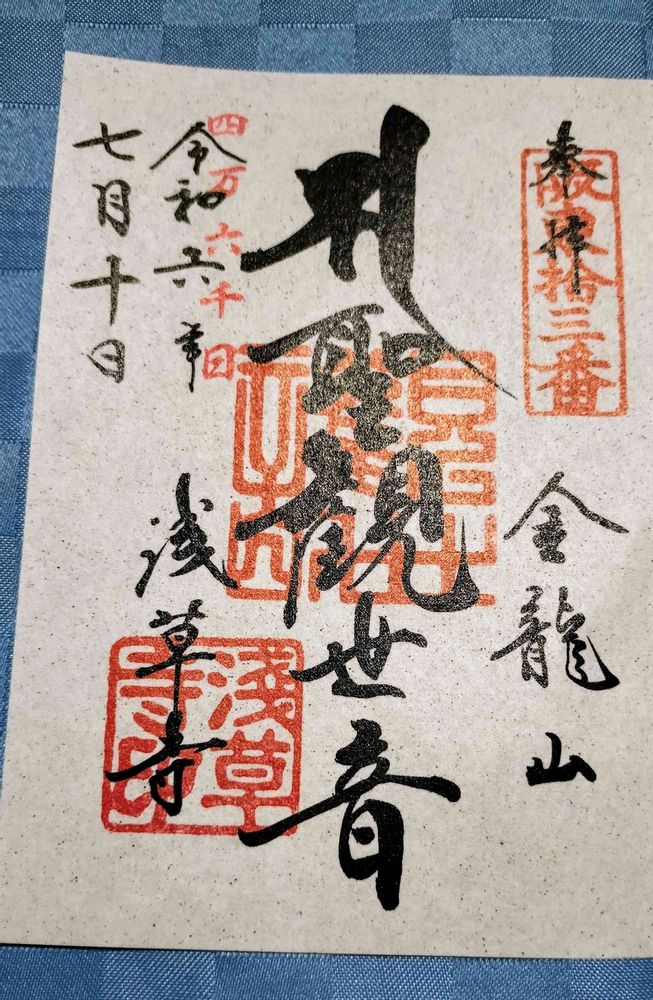 奉拝
阪東拾三番
金龍山
聖観世音
四万六千日
令和六年
七月十日
浅草寺
淺草寺印